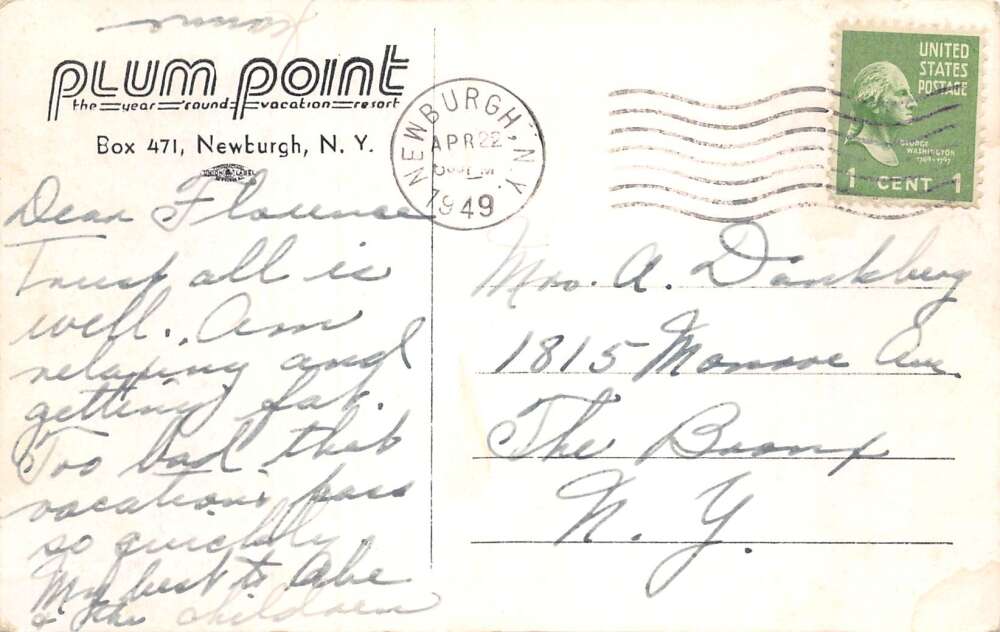 PLUM POINT
the year 'round vacation resort
Box 471, Newburgh, N. Y.
UNION LABEL
NEWBURGH, N.Y.
APR 22
PM
1949
UNITED
STATES
POSTAGE
GEORGE
WASHINGTON
1789-1797
1 CENT 1
Dear Florence
Trust all is
well. Am
relaxing and
getting fat.
Too bad that
vacations pass
so quickly.
My best to Abe
& the children
Mrs. A. Dankberg
1815 Monroe Ave.
The Bronx
N. Y.